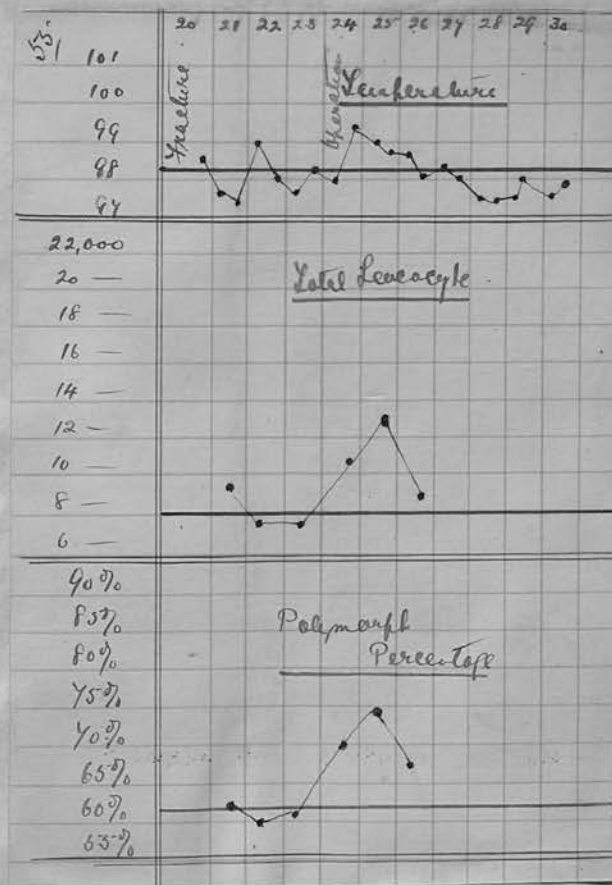 55.
20 21 22 23 24 25 26 27 28 29 30
101
100
99
98
97
Fracture
Operation
Temperature
22,000
20 —
18 —
16 —
14 —
12 —
10 —
8 —
6 —
Total Leucocyte
90%
85%
80%
75%
70%
65%
60%
55%
Polymorph
Percentage